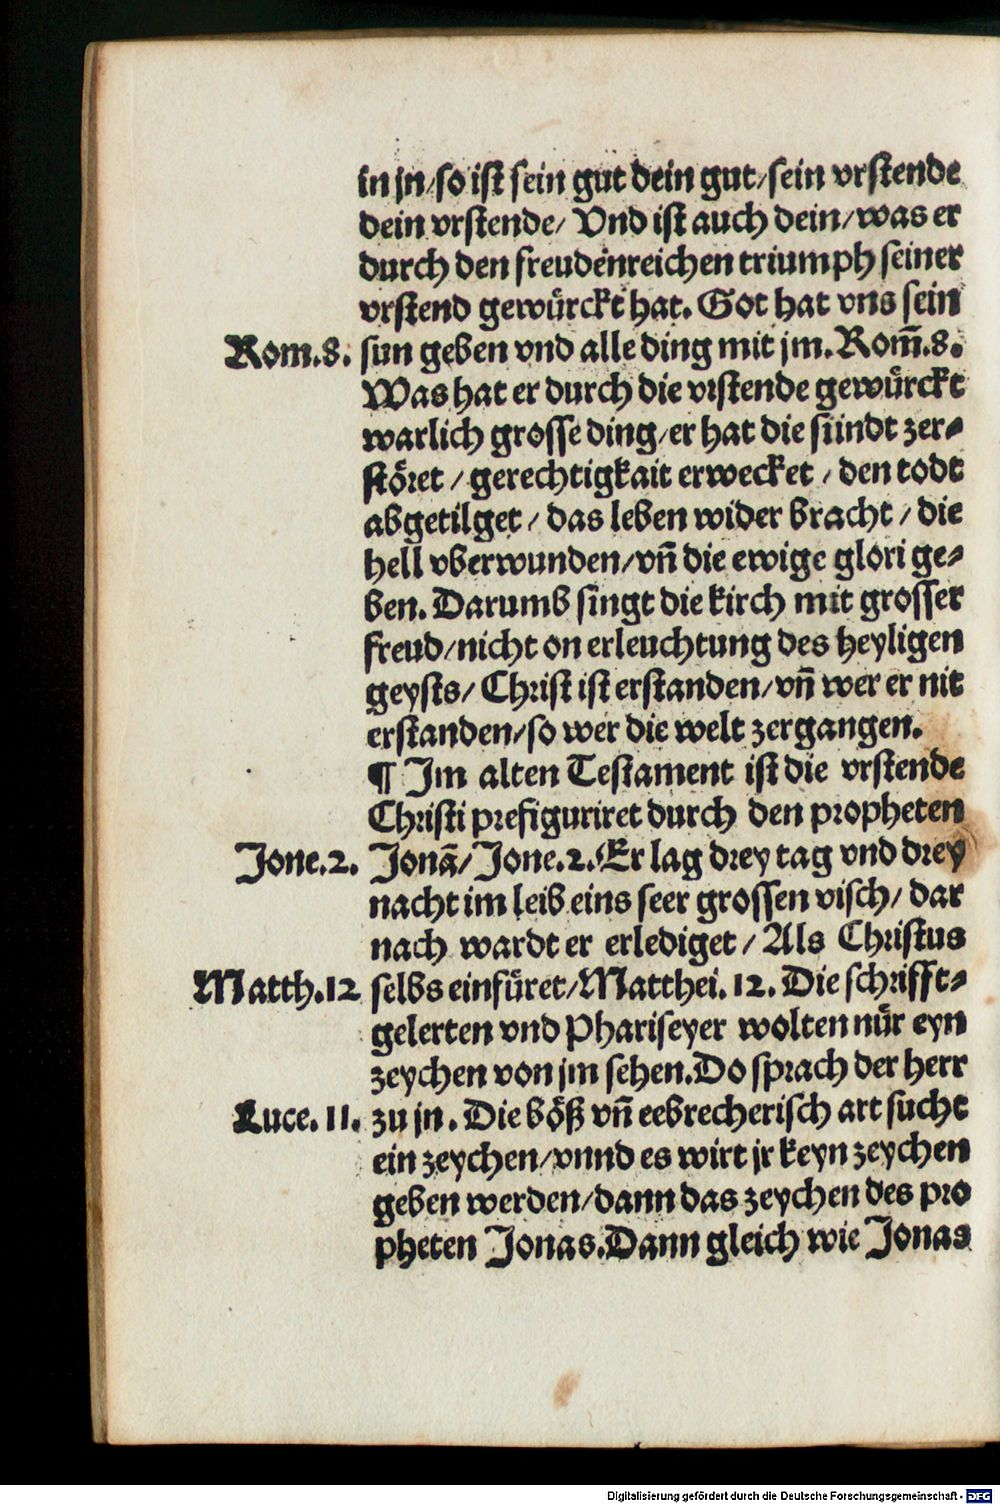 in jn/so ist sein gut dein gut/sein vrstende
dein vrstende/ Vnd ist auch dein/was er
durch den freudenreichen triumph seiner
vrstend gewürckt hat. Got hat vns sein
Rom.8. sun geben vnd alle ding mit jm. Rom̃.8.
Was hat er durch die vrstende gewürckt
warlich grosse ding/er hat die sündt zer-
störet/gerechtigkait erwecket/den todt
abgetilget/das leben wider bracht/die
hell vberwunden/vñ die ewige glori ge-
ben. Darumb singt die kirch mit grosser
freud/nicht on erleuchtung des heyligen
geysts/ Christ ist erstanden/vñ wer er nit
erstanden/so wer die welt zergangen.
¶ Jm alten Testament ist die vrstende
Christi prefiguriret durch den propheten
Jone.2. Jonã/Jone.2. Er lag drey tag vnd drey
nacht im leib eins seer grossen visch/ dar
nach wardt er erlediget/Als Christus
Matth.12 selbs einfüret/Matthei.12. Die schrifft-
gelerten vnd Phariseyer wolten nür eyn
zeychen von jm sehen. Do sprach der herr
Luce.11. zu jn. Die böß vñ eebrecherisch art sucht
ein zeychen/vnnd es wirt jr keyn zeychen
geben werden/dann das zeychen des pro
pheten Jonas. Dann gleich wie Jonas
Digitalisierung gefördert durch die Deutsche Forschungsgemeinschaft - DFG